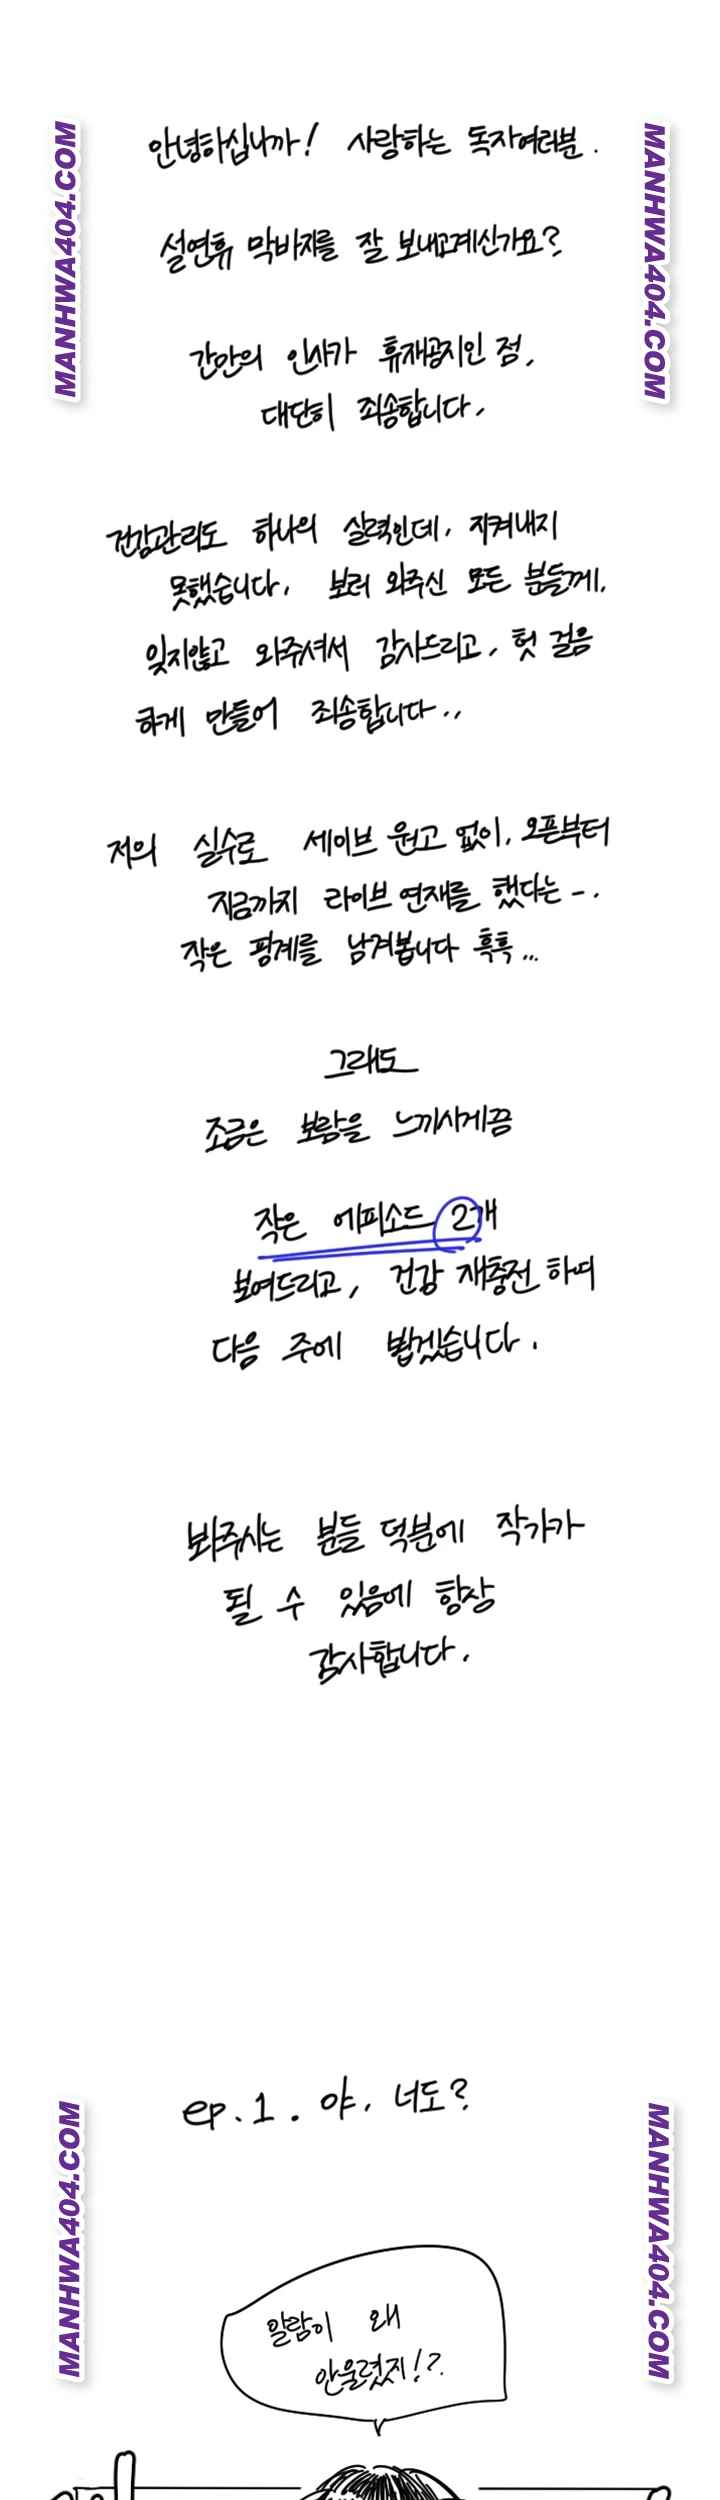 MANHWA404.COM
MANHWA404.COM
안녕하십니까! 사랑하는 독자여러분.
설연휴 막바지를 잘 보내고계신가요?
간만의 인사가 휴재공지인 점,
대단히 죄송합니다.
건강관리도 하나의 실력인데, 지켜내지
못했습니다. 보러 와주신 모든 분들께,
잊지않고 와주셔서 감사드리고, 헛 걸음
하게 만들어 죄송합니다..
저의 실수로 세이브 원고 없이, 오픈부터
지금까지 라이브 연재를 했다는-.
작은 핑계를 남겨봅니다 흑흑...
그래도
조금은 보람을 느끼시게끔
작은 에피소드 2개
보여드리고, 건강 재충전 하여
다음 주에 뵙겠습니다.
봐주시는 분들 덕분에 작가가
될 수 있음에 항상
감사합니다.
ep.1. 야, 너도?
MANHWA404.COM
MANHWA404.COM
알람이 왜
안울렸지!?